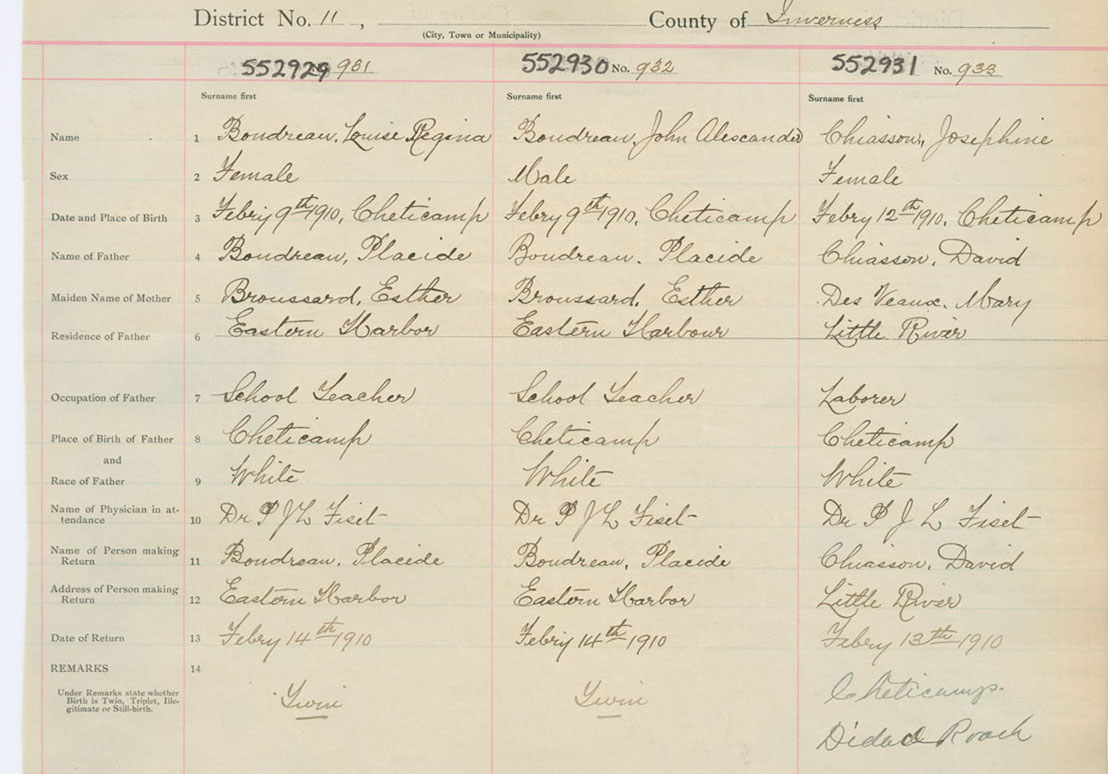 District No. 11 , County of Inverness
(City, Town or Municipality)
552929 931 552930 No. 932 552931 No. 933
Surname first Surname first Surname first
Name 1 Boudreau, Louise Regina Boudreau, John Alescander Chiasson, Josephine
Sex 2 Female Male Female
Date and Place of Birth 3 Febry 9th 1910, Cheticamp Febry 9th 1910, Cheticamp Febry 12th 1910, Cheticamp
Name of Father 4 Boudreau, Placide Boudreau. Placide Chiasson, David
Maiden Name of Mother 5 Broussard, Esther Broussard, Esther Des Veaux. Mary
Residence of Father 6 Eastern Harbor Eastern Harbour Little River
Occupation of Father 7 School Teacher School Teacher Laborer
Place of Birth of Father 8 Cheticamp Cheticamp Cheticamp
and
Race of Father 9 White White White
Name of Physician in at-
tendance 10 Dr P J L Fiset Dr P J L Fiset Dr P J L Fiset
Name of Person making
Return 11 Boudreau. Placide Boudreau, Placide Chiasson, David
Address of Person making
Return 12 Eastern Harbor Eastern Harbor Little River
Date of Return 13 Febry 14th 1910 Febry 14th 1910 Febry 13th 1910
REMARKS 14
Under Remarks state whether
Birth is Twin, Triplet, Ille-
gitimate or Still-birth.
Twin Twin Cheticamp.
Roach